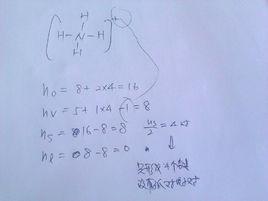 H +
H-N-H
H
n₀ = 8 + 2×4 = 16
nv = 5 + 1×4 - 1 = 8
ns = 16 - 8 = 8 ns/2 = 4对
nl = 8 - 8 = 0